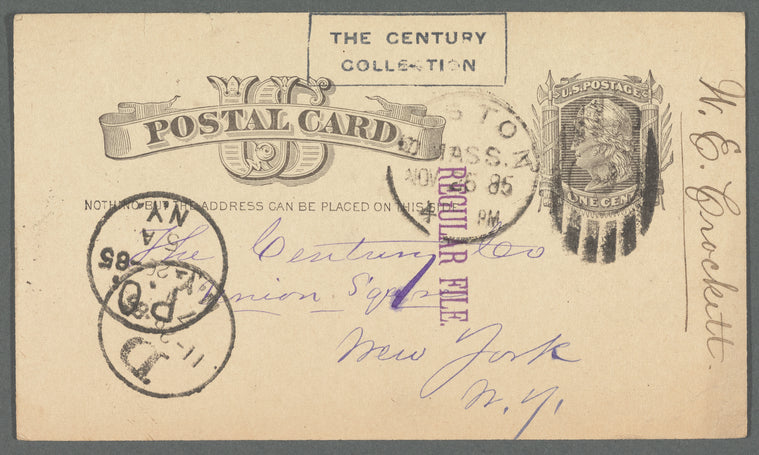 THE CENTURY
COLLECTION
U.S. POSTAGE
US
POSTAL CARD
ONE CENT
NOTHING BUT THE ADDRESS CAN BE PLACED ON THIS SIDE
STON
MASS.
NOV 85
4 PM
REGULAR FILE.
W. E. Crockett.
The Century Co
Union Square
New York
N. Y.
NY
A
85
P.O.
D